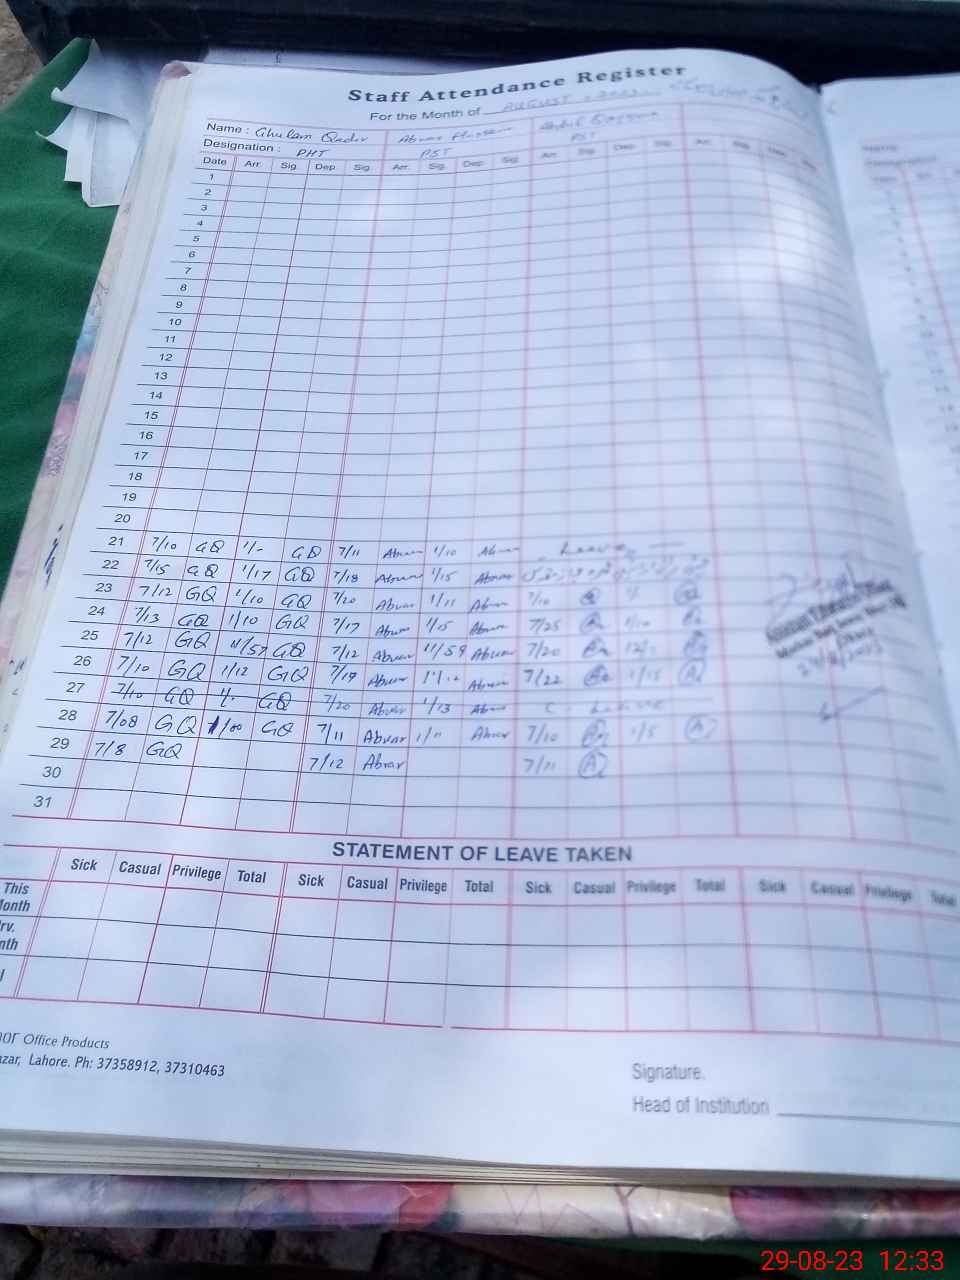 Staff Attendance Register
For the Month of AUGUST
Name : Ghulam Qadir Abrar Hussain
Designation : PHT PST PST
Date Arr. Sig. Dep Sig. Arr. Sig. Dep. Sig. Arr. Sig. Dep. Sig. Arr. Sig. Dep.
1
2
3
4
5
6
7
8
9
10
11
12
13
14
15
16
17
18
19
20
21 7/10 GQ 1/- GQ 7/11 Abrar 1/10 Abrar Leave
22 7/15 GQ 1/17 GQ 7/18 Abrar 1/15 Abrar
23 7/12 GQ 1/10 GQ 7/20 Abrar 1/11 Abrar 7/10
24 7/13 GQ 1/10 GQ 7/17 Abrar 1/15 Abrar 7/25 1/10
25 7/12 GQ 11/57 GQ 7/12 Abrar 11/59 Abrar 7/20
26 7/10 GQ 1/12 GQ 7/19 Abrar 1/12 Abrar 7/22 1/15 A
27 7/10 GQ 1/- GQ 7/20 Abrar 1/13 Abrar Leave
28 7/08 GQ 1/00 GQ 7/11 Abrar 1/11 Abrar 7/10 1/5 A
29 7/8 GQ 7/12 Abrar 7/11 A
30
31
STATEMENT OF LEAVE TAKEN
Sick Casual Privilege Total Sick Casual Privilege Total Sick Casual Privilege Total Sick Casual Privilege Total
This
Month
Office Products
Lahore. Ph: 37358912, 37310463
Signature.
Head of Institution
29-08-23 12:33